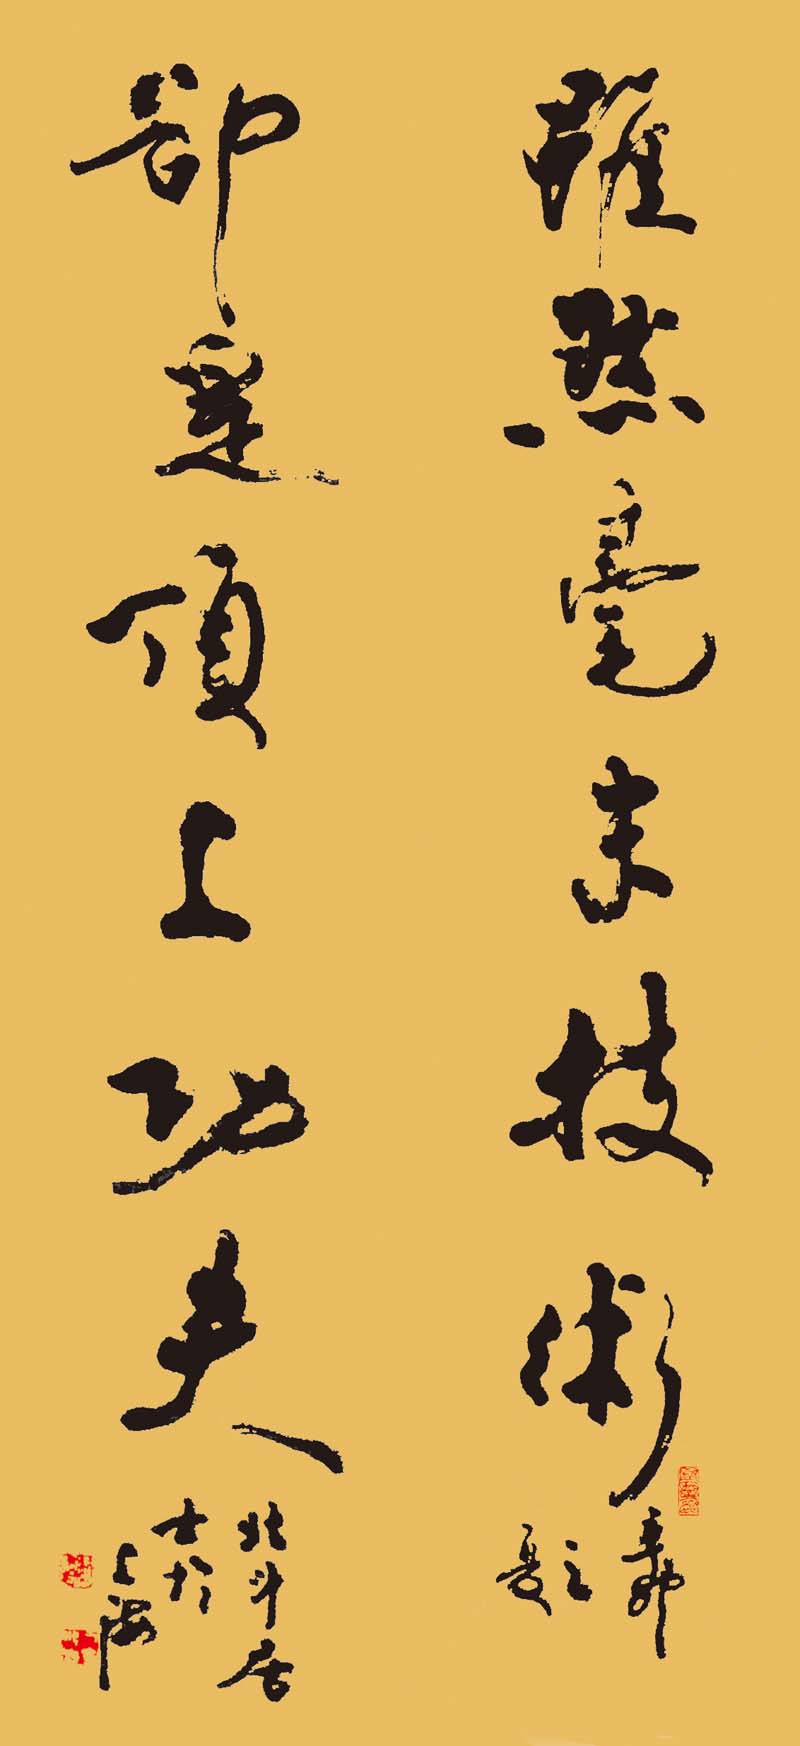 雖然毫末技術
卻是頂上功夫
之夏
北斗居
士於
上海